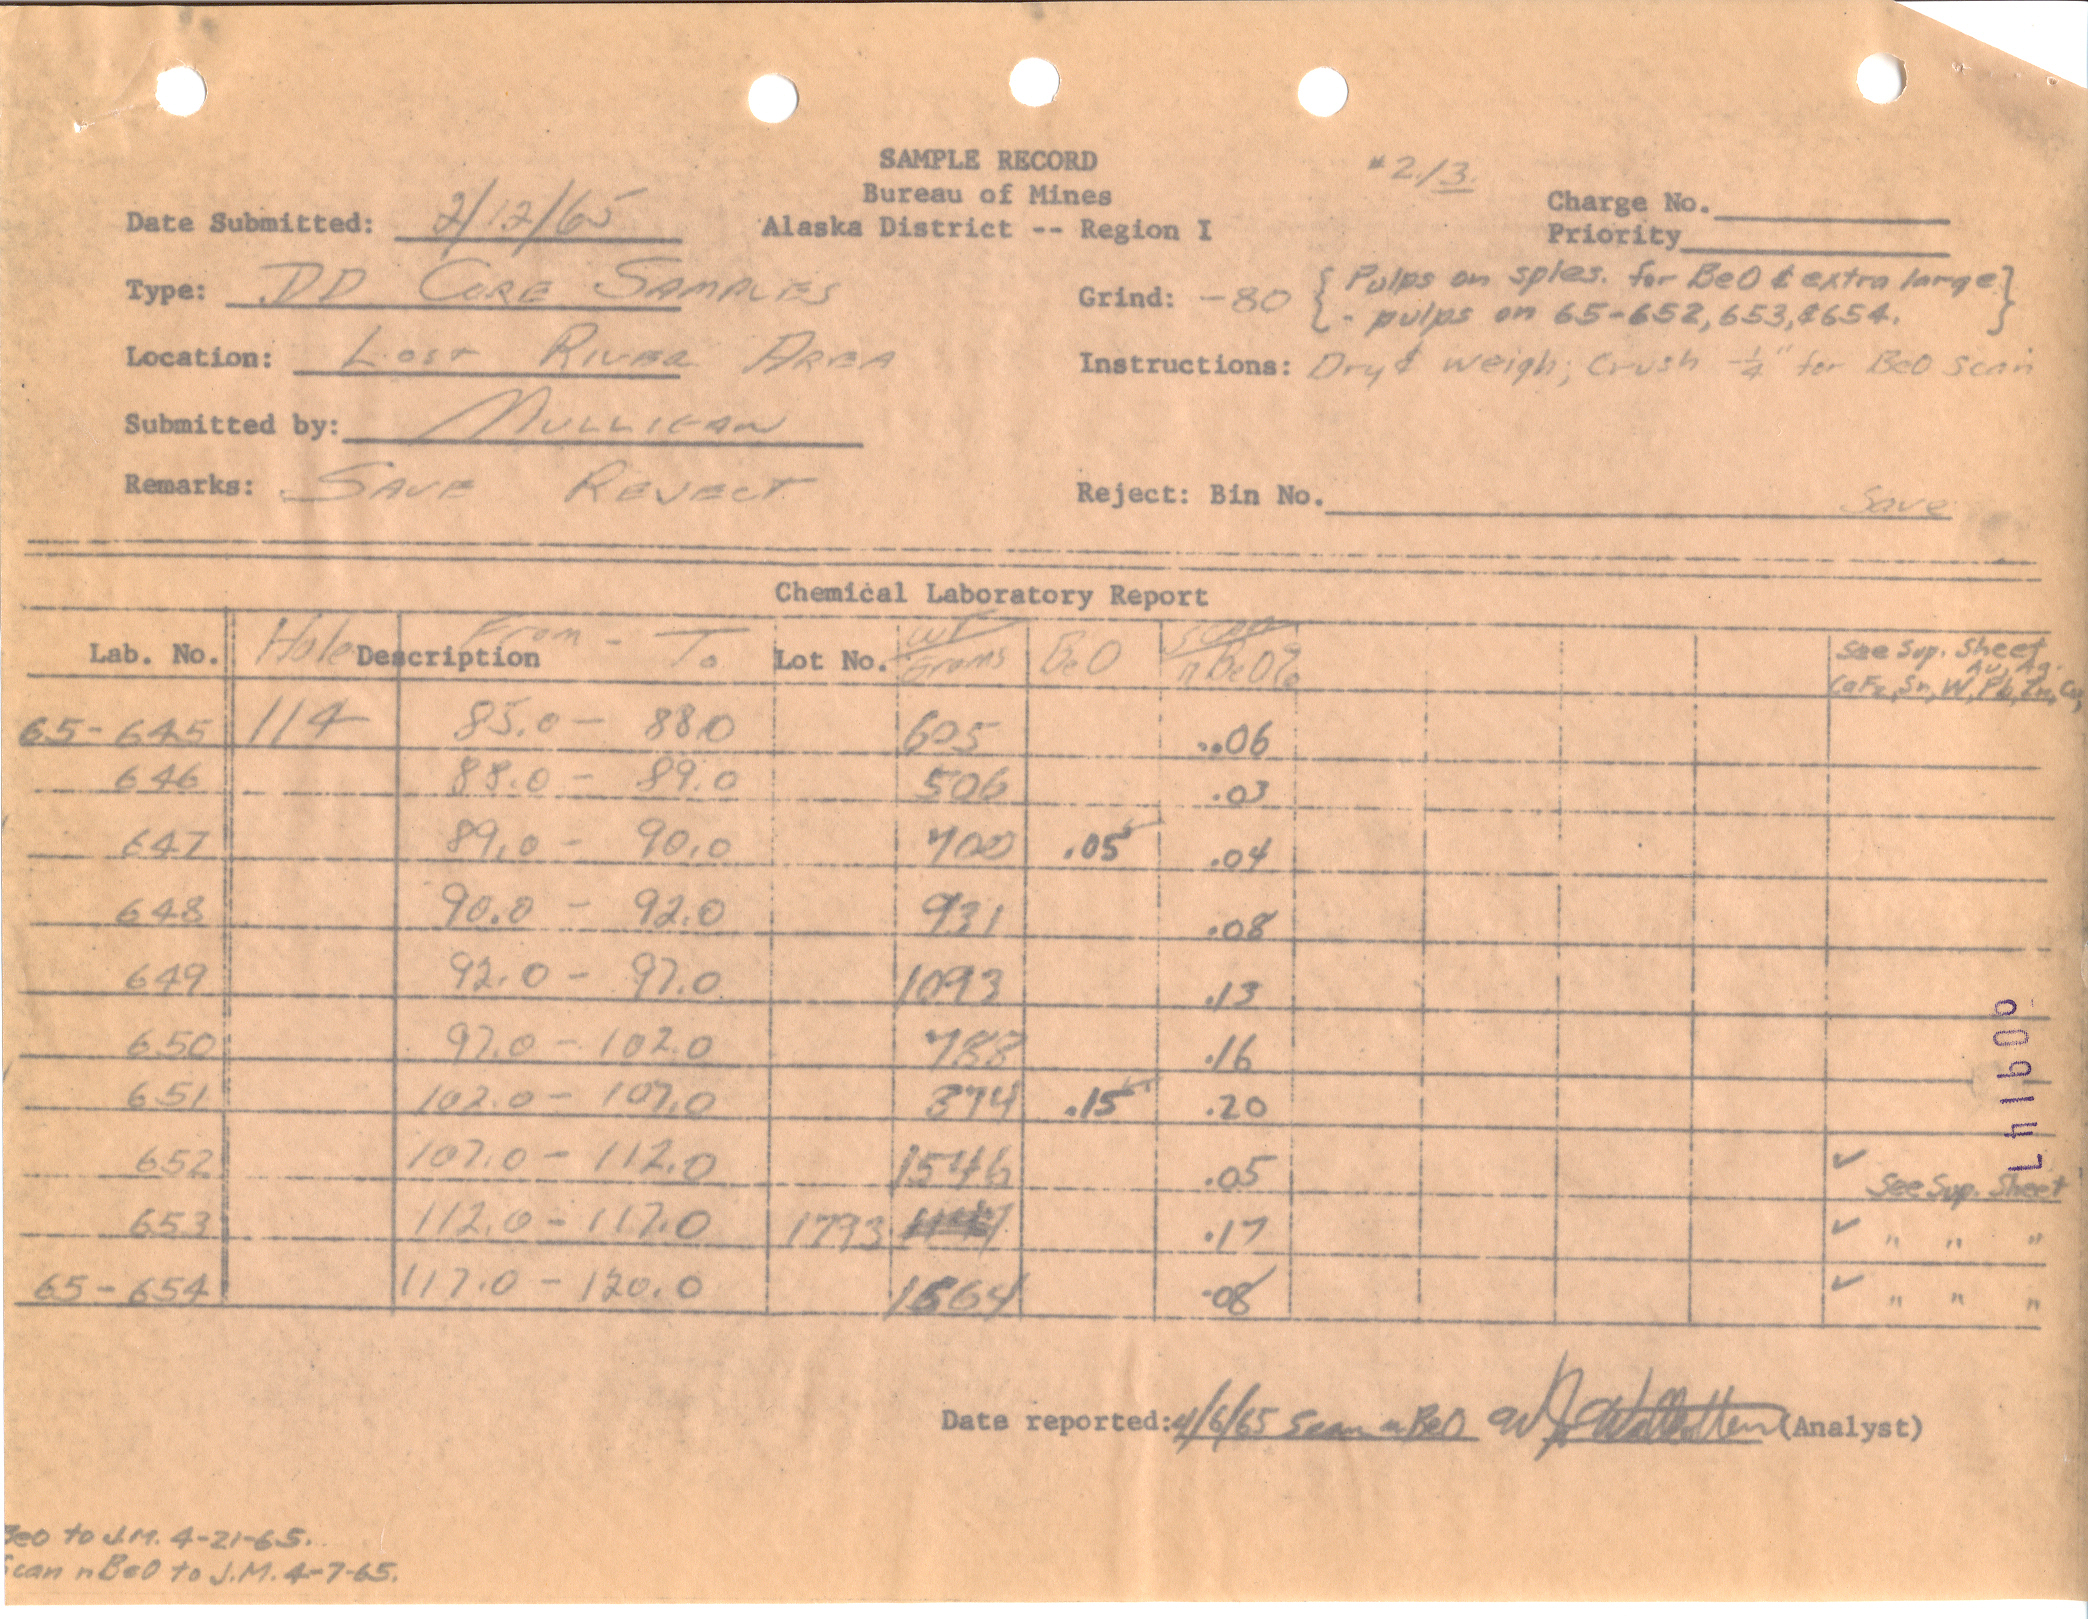 SAMPLE RECORD
#2/3.
Bureau of Mines
Charge No.
Date Submitted: 2/12/65
Alaska District -- Region I
Priority
Type: DD CORE SAMPLES
Grind: -80 { Pulps on sples. for BeO & extra large }
{ - pulps on 65-652, 653, & 654. }
Location: LOST RIVER AREA
Instructions: Dry & weigh; Crush -1/4" for BeO scan
Submitted by: MULLIGAN
Remarks: SAVE REJECT
Reject: Bin No. Save
Chemical Laboratory Report
Lab. No. Hole Description From - To Lot No. wt Grams BeO scan nBeO% See Sup. Sheet Au, Ag. CaF2, Sn, W, Pb, Zn, Cu,
65-645 114 85.0 - 88.0 605 .06
646 88.0 - 89.0 506 .03
647 89.0 - 90.0 700 .05 .04
648 90.0 - 92.0 931 .08
649 92.0 - 97.0 1093 .13
650 97.0 - 102.0 788 .16
651 102.0 - 107.0 374 .15 .20
652 107.0 - 112.0 1546 .05 ✓ See Sup. Sheet
653 112.0 - 117.0 1793 .17 ✓ " " "
65-654 117.0 - 120.0 1564 .08 ✓ " " "
Date reported: 4/6/65 Scan nBeO (Analyst)
BeO to J.M. 4-21-65.
Scan nBeO to J.M. 4-7-65.